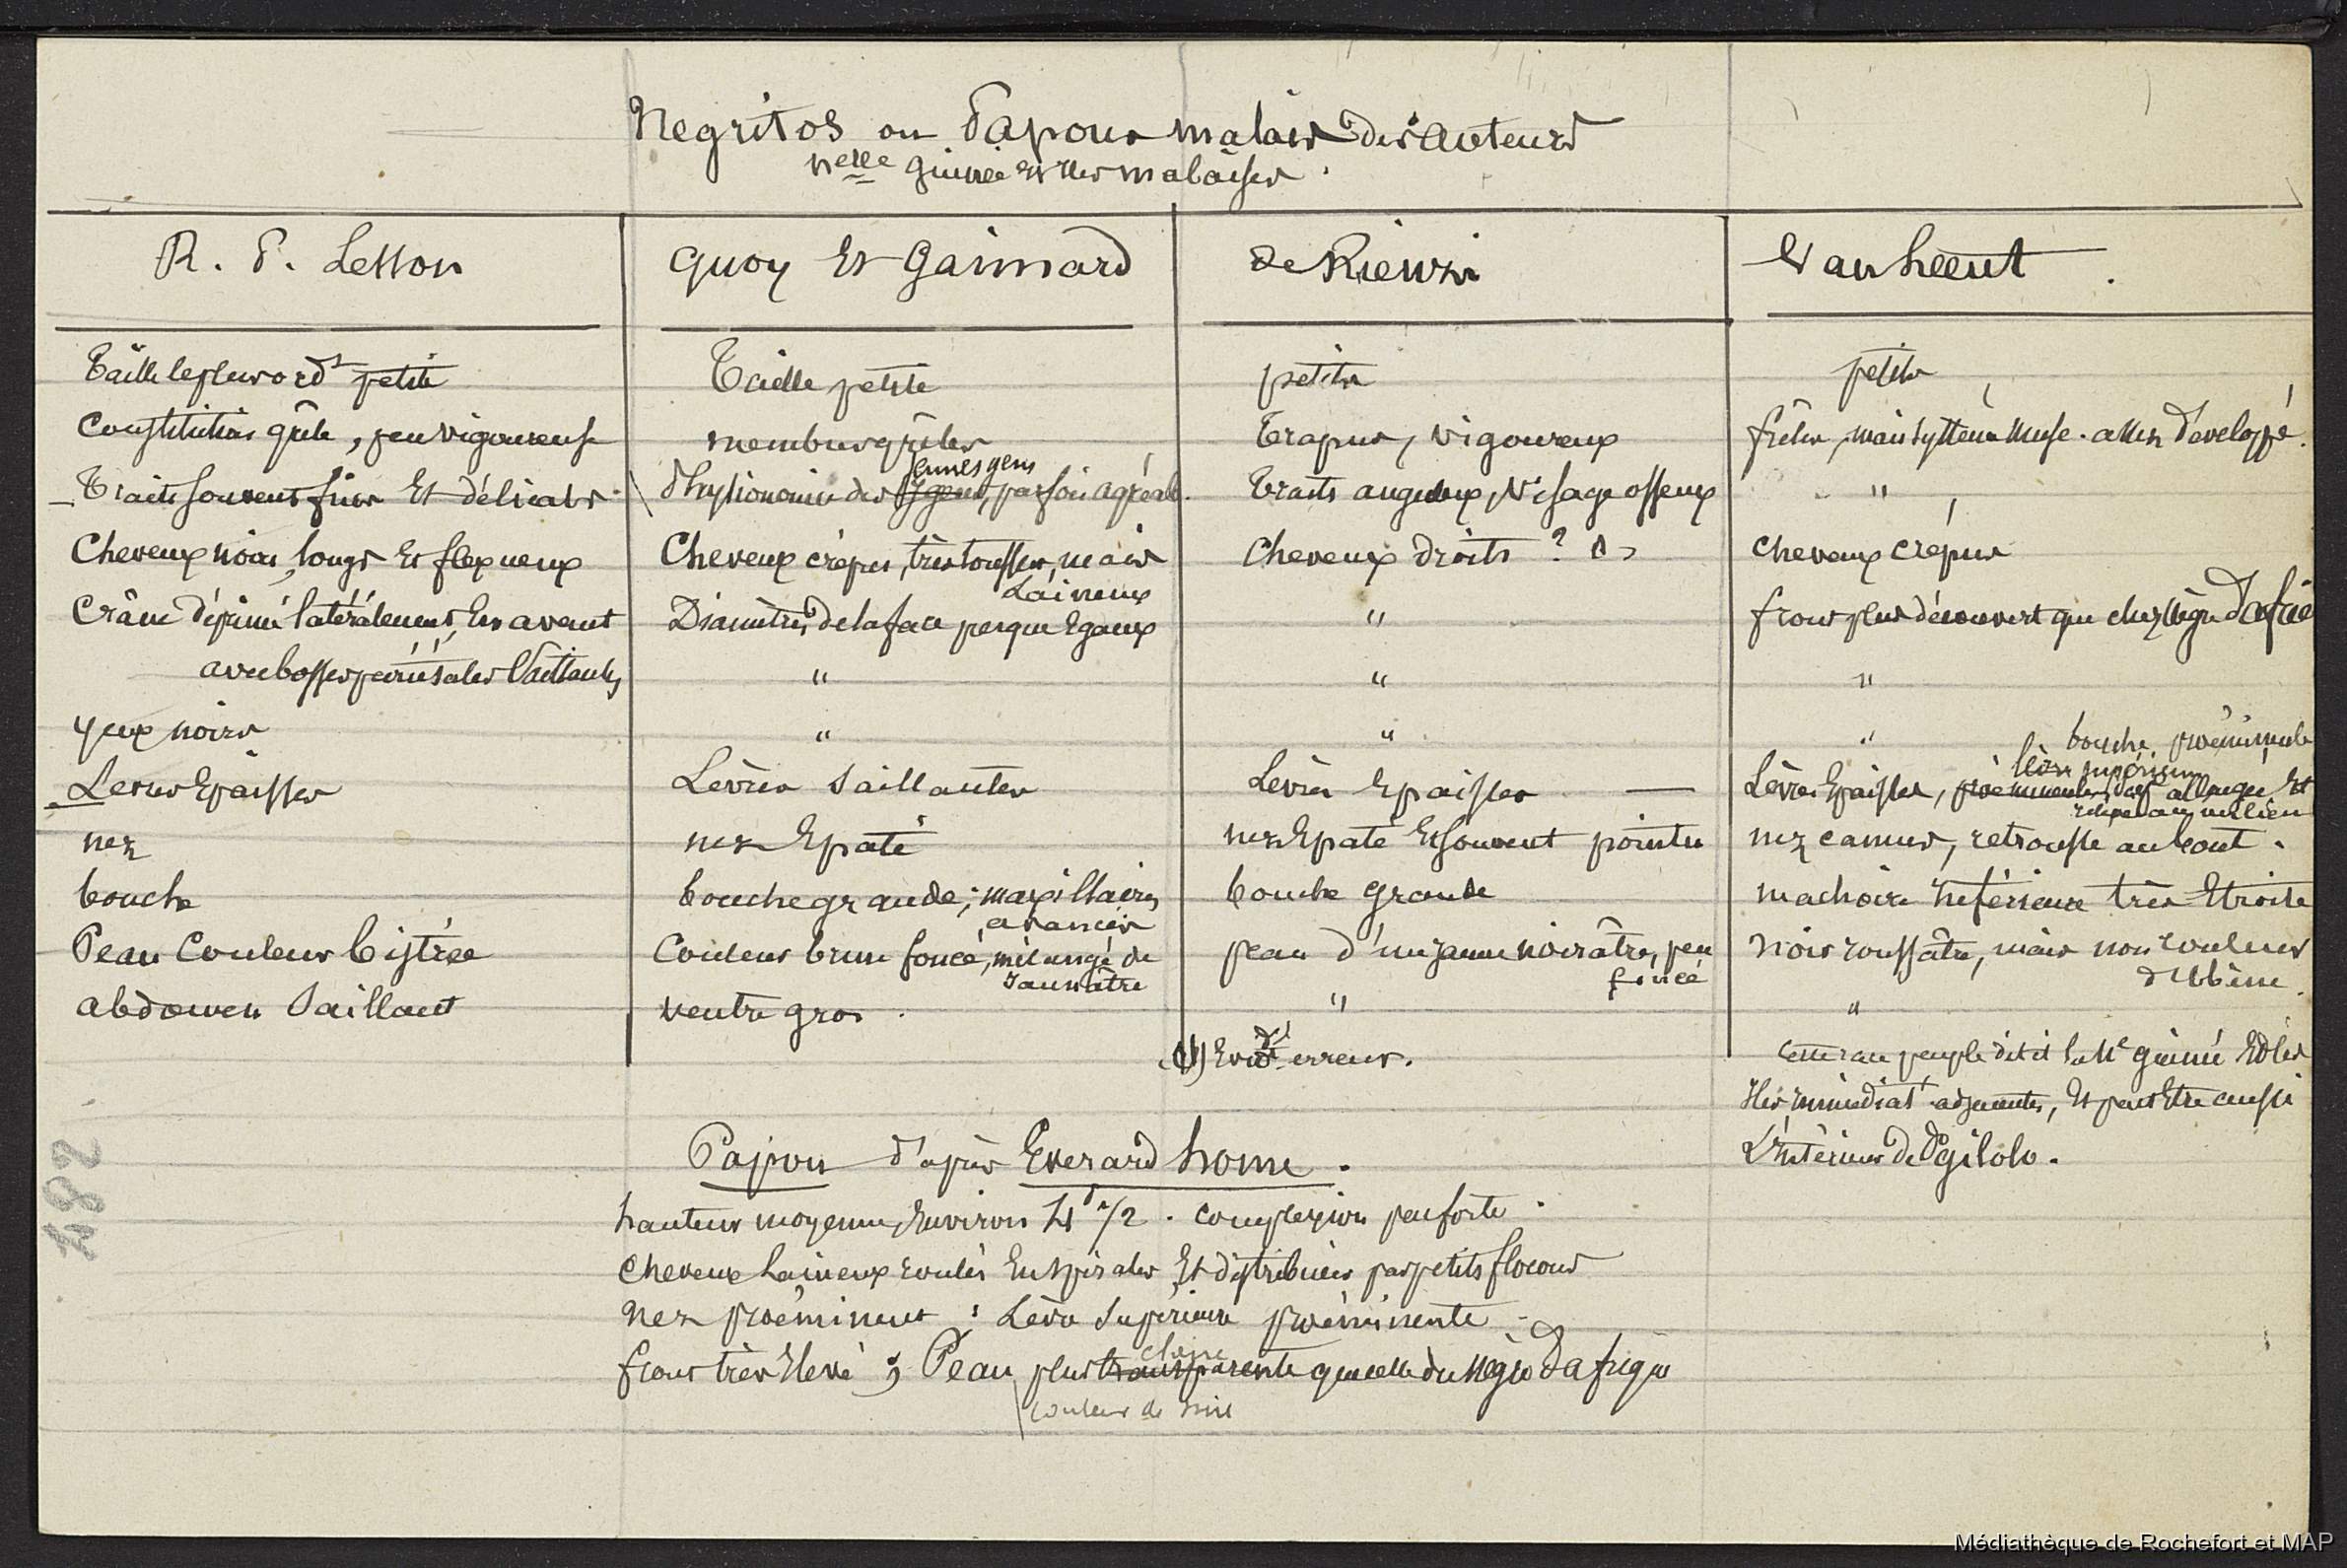 Negritos ou Papous malais des auteurs
Nelle Guinée et Iles malaises.
R. P. Lesson
Quoy et Gaimard
de Rienzi
Van heent.
Taille le plus ordt petite
Taille petite
petits
petits
Constitution grêle, peu vigoureuse
membres grêles
Trapus, vigoureux
frêles, mais système musc. assez développé.
Traits souvent fins et délicats.
Physionomie des jeunes gens, parfois agréab.
Traits anguleux, visage osseux
"
Cheveux noirs, longs et flexueux
Cheveux crépus, très touffus, mais
Laineux
Cheveux droits ? (1)
cheveux crépus
Crâne déprimé latéralement, en avant
Diamètres de la face presque egaux
"
front plus découvert que chez nègre d'afrie
avec bosses pariétales Saillantes
"
"
"
yeux noirs
"
"
"
bouche proéminente
Levres Epaisses
Lèvres Saillantes
Lèvres Epaisses —
lèvre supérieure
Lèvres Epaisses, proéminentes, allongée et
relevée au milieu
nez
nez Epaté
nez Epaté et souvent pointu
nez camus, retroussé au bout.
bouche
bouche grande; maxillaires
avancés
bouche grande
machoire inférieure très Etroite
Peau Couleur bistrée
Couleur brune foncé, mélangé de
Jaunâtre
peau d'un jaune noirâtre, peu
foncé
Noir roussâtre, mais non couleur
d'Ebène.
abdomen Saillant
ventre gros.
"
"
(1) Evidt erreur.
Cette race peuple dit-il la Nle guinée et les
Iles immédiatt adjacentes, et peut être aussi
L'intérieur de gilolo.
Papou d'après Everard home.
hauteur moyenne, environ 4 1/2. complexion peu forte.
Cheveux Laineux roulés en spirales et distribués par petits flocons
Nez proéminent : Lèvre Supérieure proéminente
claire
front très Elevé ; Peau plus transparente que celle du nègre d'afrique
couleur de suie
282
Médiathèque de Rochefort et MAP